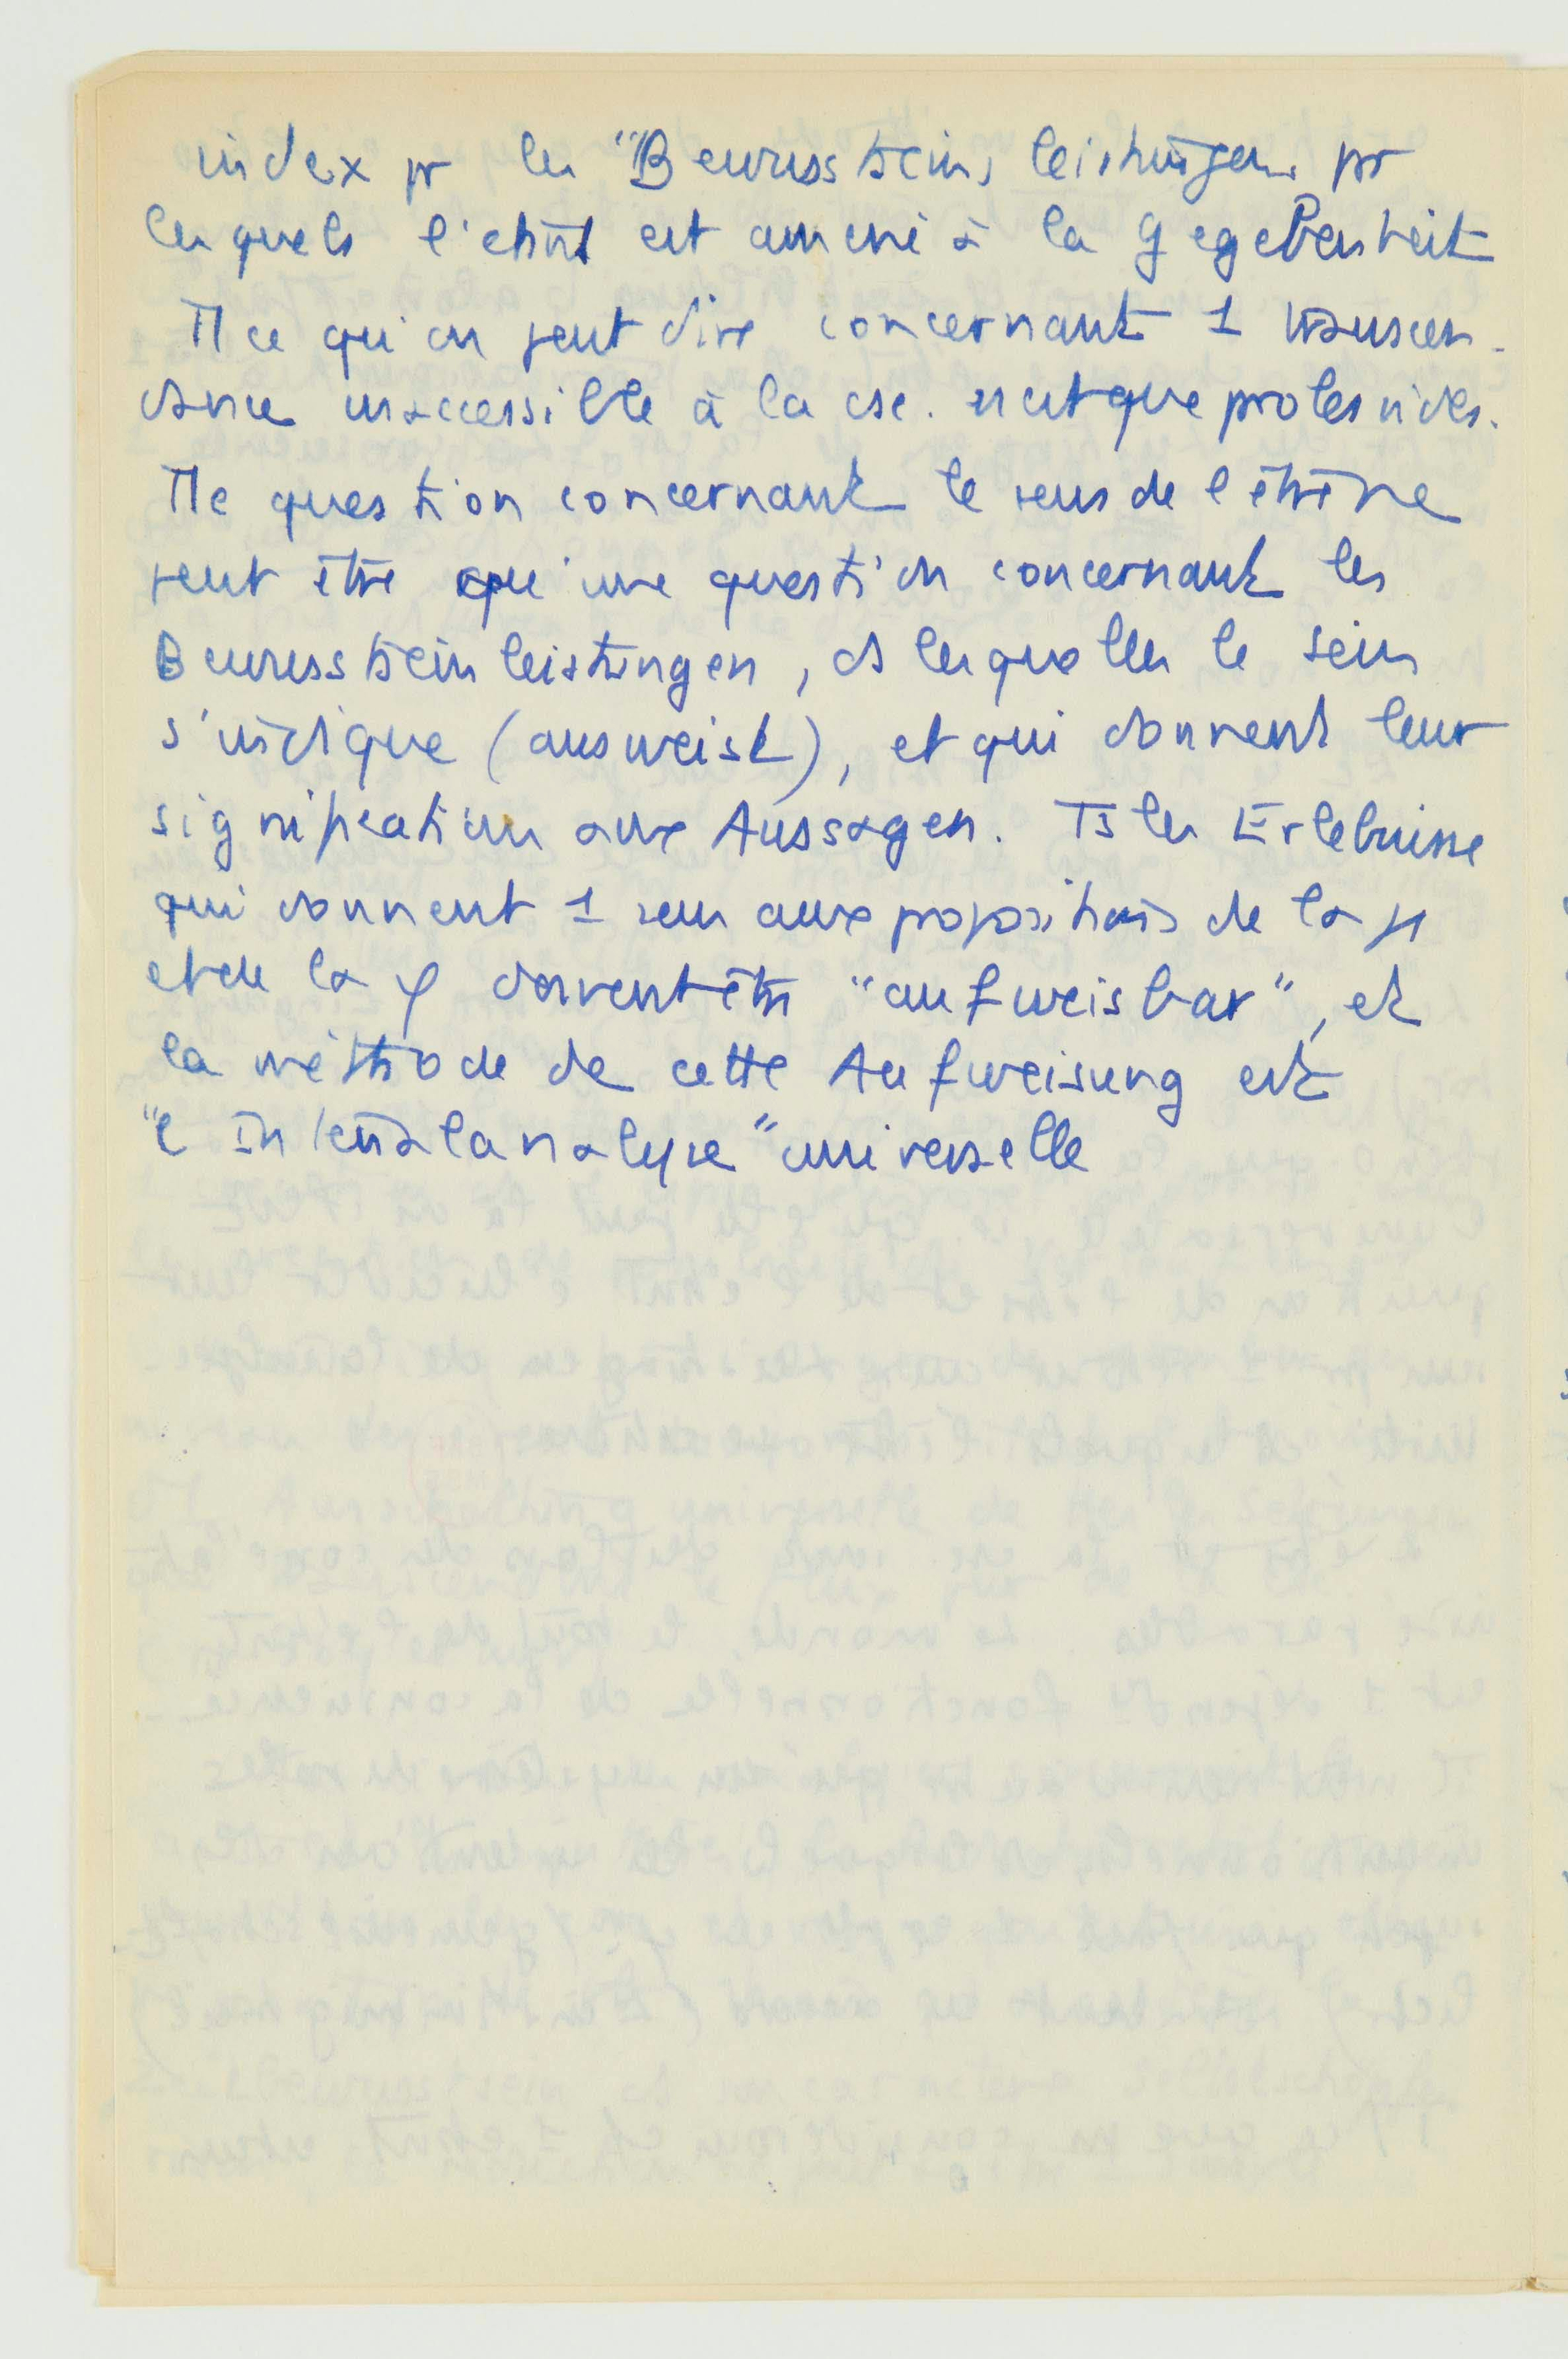 index pr les "Bewusstseinsleistungen pr
lesquels l'étant est amené à la Gegebenheit
Tt ce qu'on peut dire concernant 1 transcen-
dance inaccessible à la csc. n'est que
Tte question concernant le sens de l'être ne
peut être qu'une question concernant les
Bewusstseinleistungen, ds lesquelles le sein
s'indique (ausweist), et qui donnent leur
signification aux Aussagen. Ts les Erlebnisse
qui donnent 1 sens aux propositions de la
et de la φ doivent être "aufweisbar", et
la méthode de cette Aufweisung est
"l'Intentalanalyse" universelle